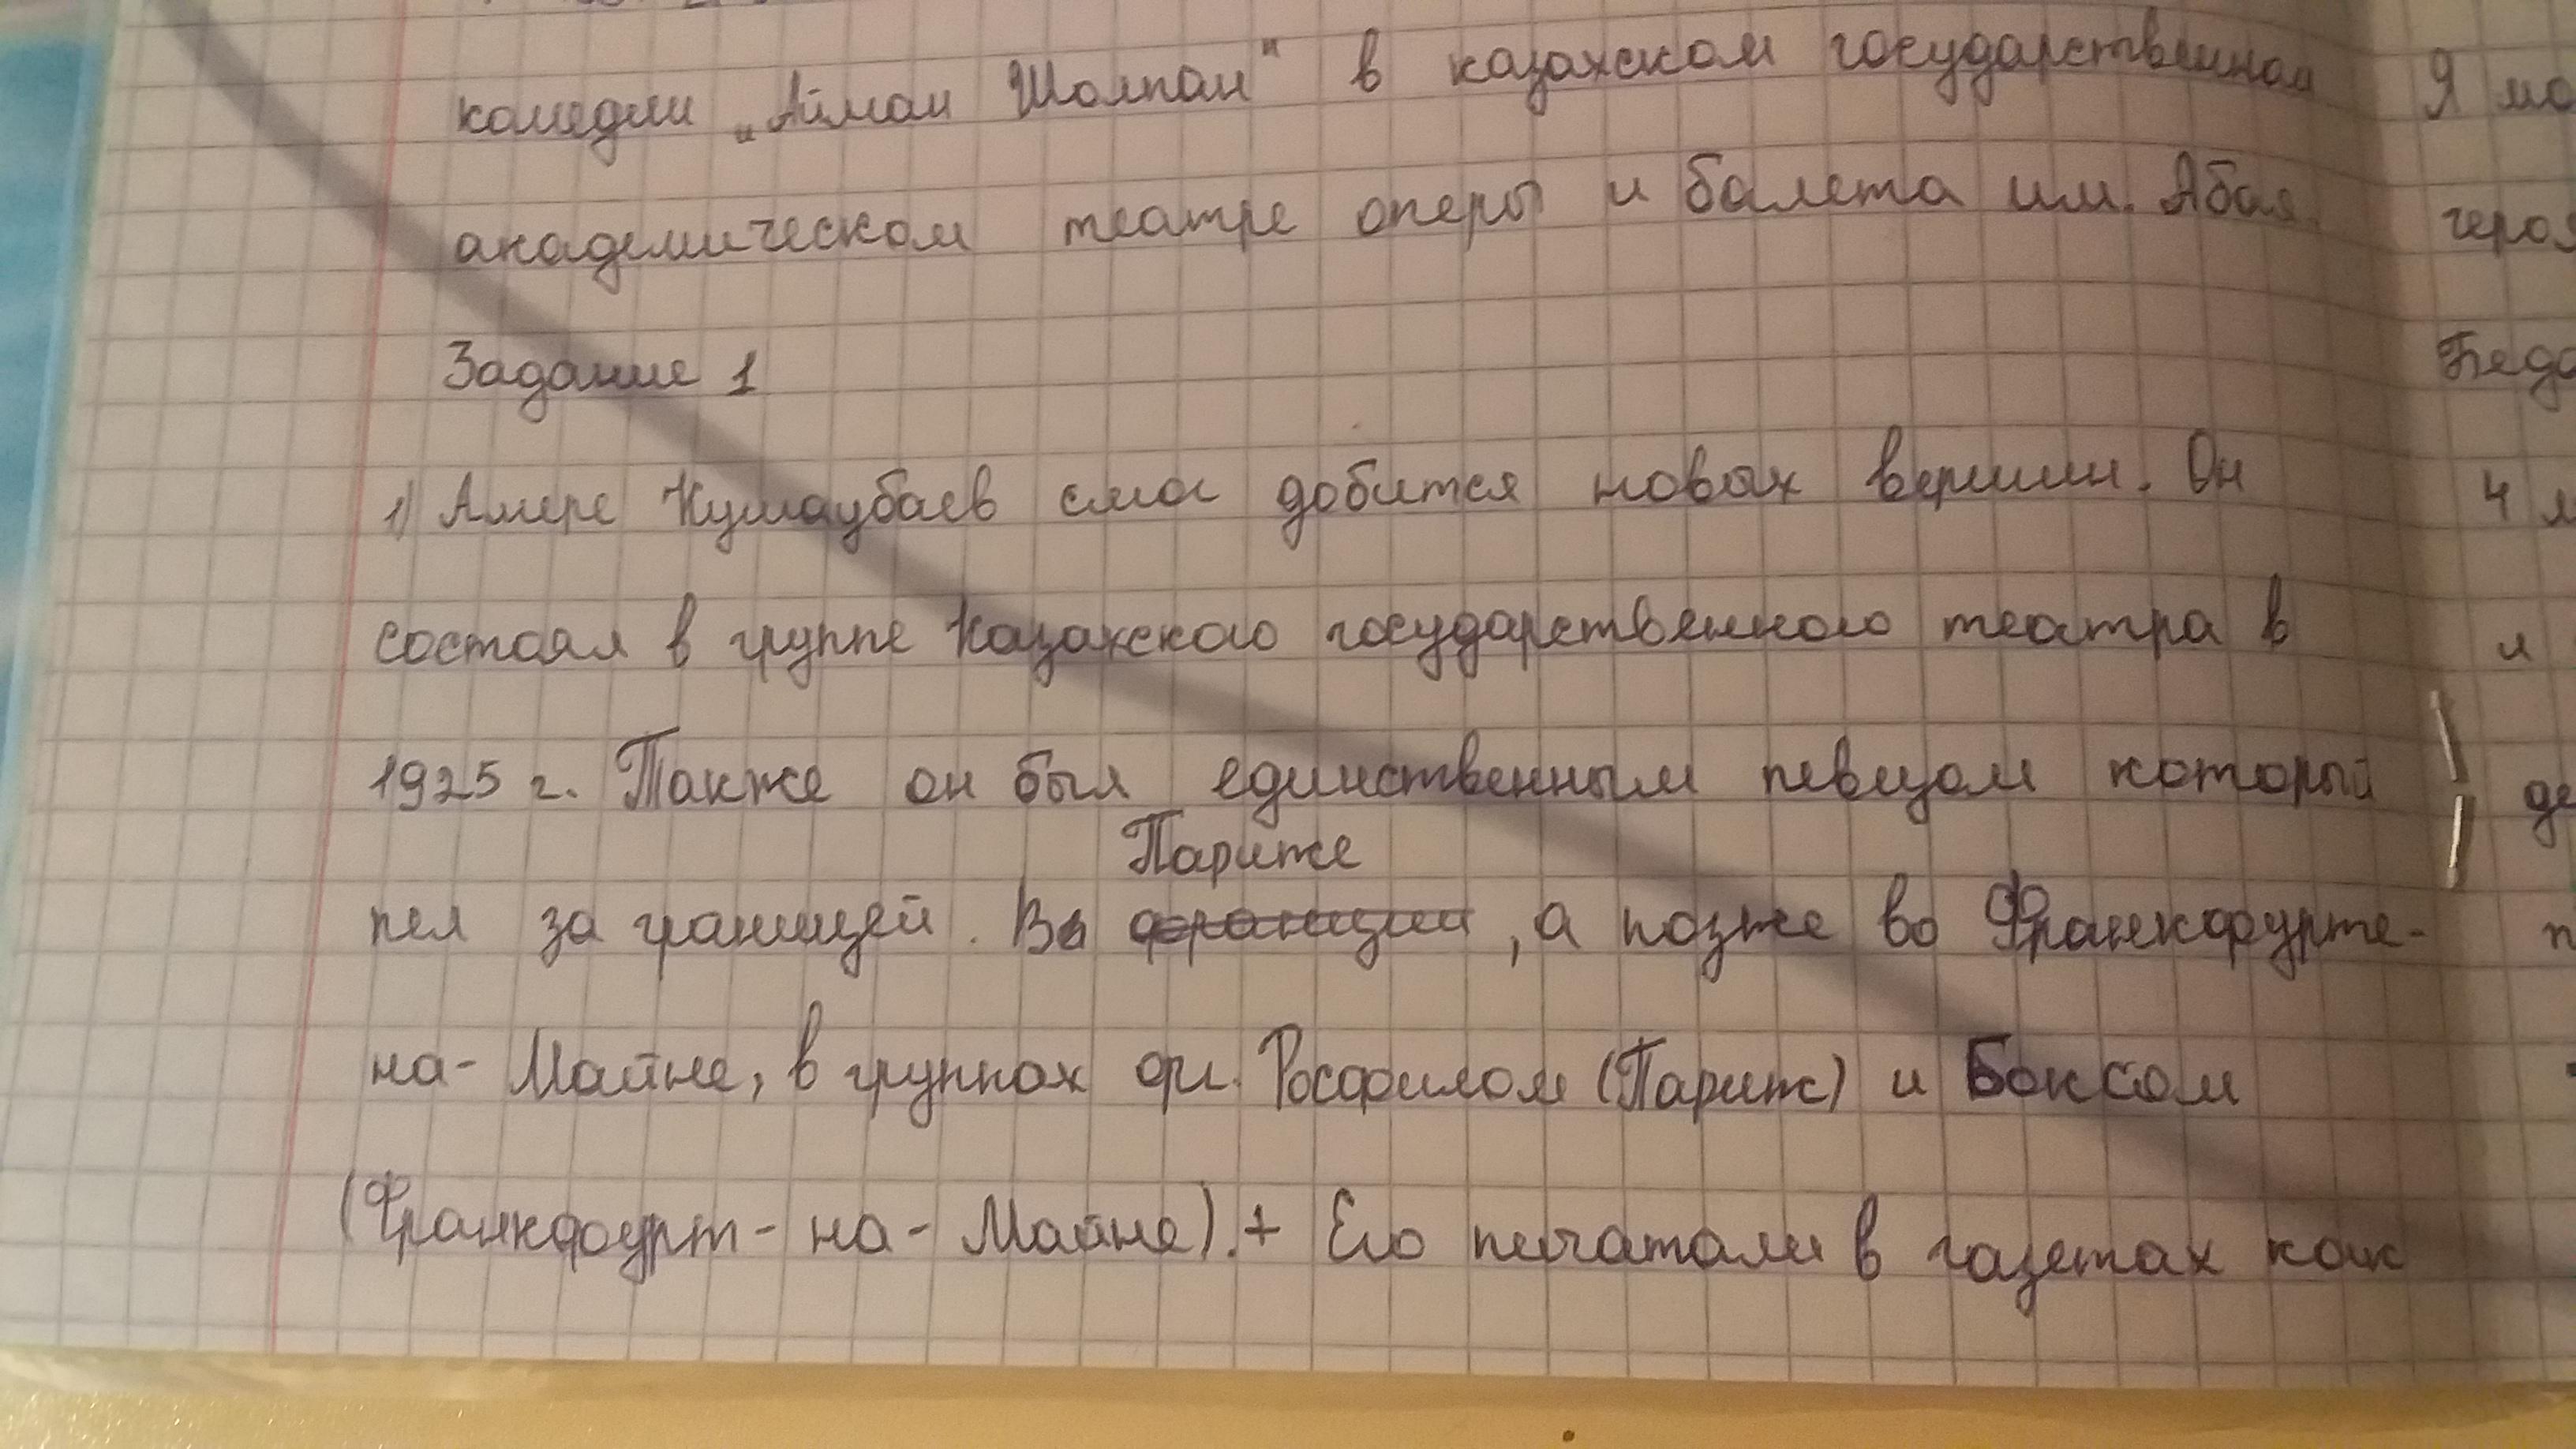 комедии „Айман Шолпан" в казахском государственном
академическом театре оперы и балета им. Абая.
Задание 1
1) Амере Кушаубаев смог добится новых вершин. Он
состоял в группе Казахского государственного театра в
1925 г. Также он был единственным певцом который
Париже
пел за границей. В франции, а позже во Франкфурте-
на- Майне, в группах орг. Росфилом (Париж) и Боксом
(Франкфурт - на - Майне).+ Его печатали в газетах как
Я
героя
4
и